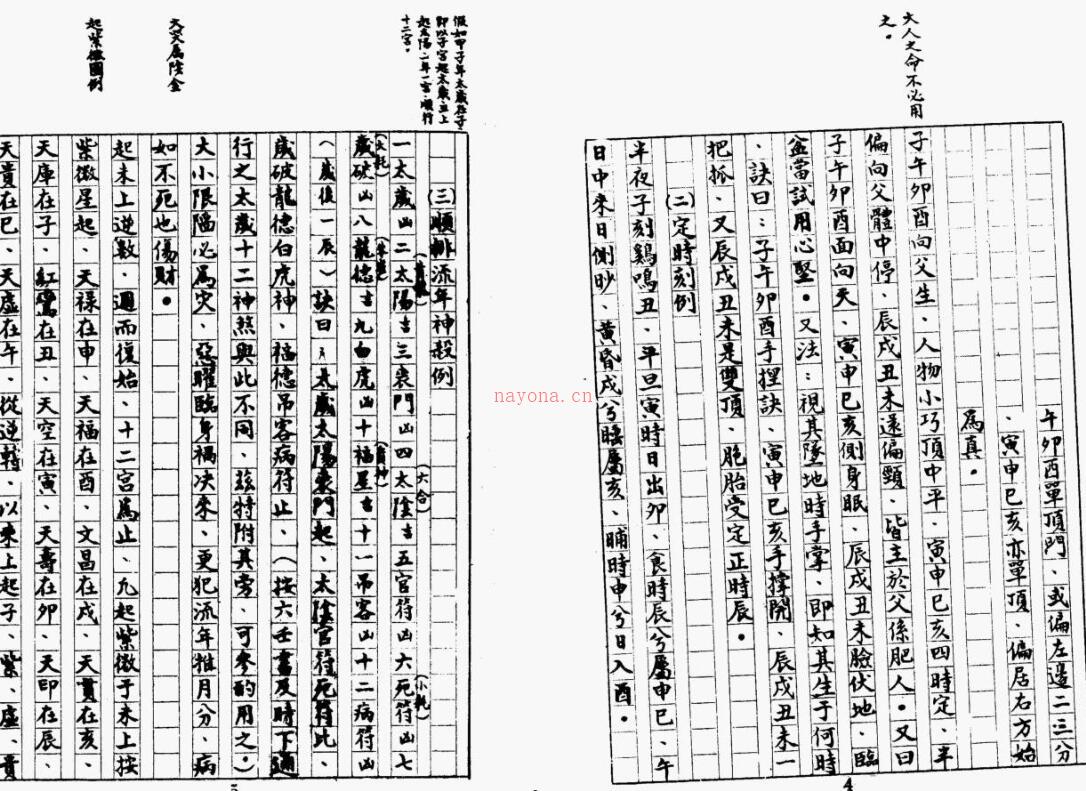 大人之命不必用
之。
午卯酉單頂門、或偏左邊二三分
、寅申巳亥亦單頂、偏居右方始
為真。
子午卯酉向父生、人物小巧頂中平、寅申巳亥四時定、半
偏向父體中停、辰戌丑未還偏頸、皆主於父係肥人。又曰
子午卯酉面向天、寅申巳亥側身眠、辰戌丑未臉伏地、臨
盆當試用心堅。又法：視其墜地時手掌、即如其生于何時
、訣曰：子午卯酉手揑訣、寅申巳亥手撑開、辰戌丑未一
把抓、又辰戌丑未是雙頂、胞胎受定正時辰。
(二)定時刻例
半夜子刻鷄鳴丑、平旦寅時日出卯、食時辰兮屬申巳、午
日中未日側眇、黄昏戌兮睡屬亥、晡時申兮日入酉。
4
假如甲子年太歲在子
即以子宮起太歲、丑上
起太陽、一年一宮、順行
十二宮。
天哭屬陰金
起紫微圖例
(三)順排流年神殺例
一太歲凶二太陽吉三喪門凶四太陰吉五官符凶六死符凶七
(六合)
(小耗)
歲破凶八龍德吉九白虎凶十福星吉十一吊客凶十二病符凶
(大耗)
(歲後一辰)訣曰：太歲太陽喪門起、太陰官符死符此、
歲破龍德白虎神、福德吊客病符止、(按六壬書及時下通
行之太歲十二神煞與此不同、茲特附其旁、可參酌用之。)
大小限臨必為灾、惡曜臨身禍决來、更犯流年推月分、病
如不死也傷財。
起未上逆数、週而復始、十二宮為止、凡起紫微于未上按
紫微星起、天禄在申、天福在酉、文昌在戌、天貫在亥、
天庫在子、紅鸞在丑、天空在寅、天壽在卯、天印在辰、
天貴在巳、天虛在午、從逆轉、以未上起子、紫、虛、貴
nayona.cn